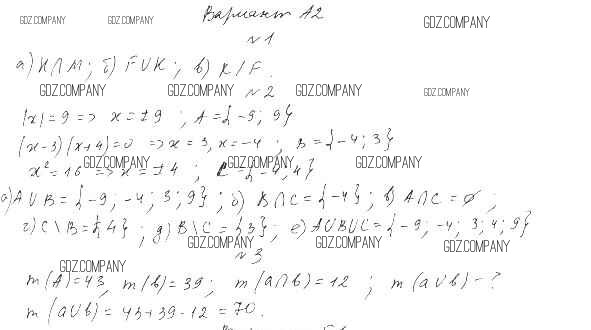 GDZ.COMPANY GDZ.COMPANY Вариант А2 GDZ.COMPANY
№1
а) K∩M; б) F∪K; в) K/F.
GDZ.COMPANY GDZ.COMPANY GDZ.COMPANY GDZ.COMPANY
№2
|x|=9 => x=±9 ; A={-9; 9}
(x-3)(x+4)=0 => x=3, x=-4 ; B={-4; 3}
x²=16 => x=±4 ; C={-4; 4}
GDZ.COMPANY GDZ.COMPANY GDZ.COMPANY
а) A∪B={-9; -4; 3; 9} ; б) B∩C={-4} ; в) A∩C=∅ ;
г) C\B={4} ; д) B\C={3} ; е) A∪B∪C={-9; -4; 3; 4; 9}
GDZ.COMPANY GDZ.COMPANY GDZ.COMPANY
№3
GDZ.COMPANY
m(A)=43, m(b)=39; m(a∩b)=12 ; m(a∪b)-?
m(a∪b)=43+39-12=70.